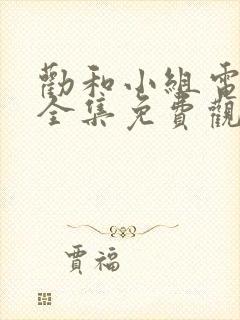 勸和小組電
全集免費觀
賈福